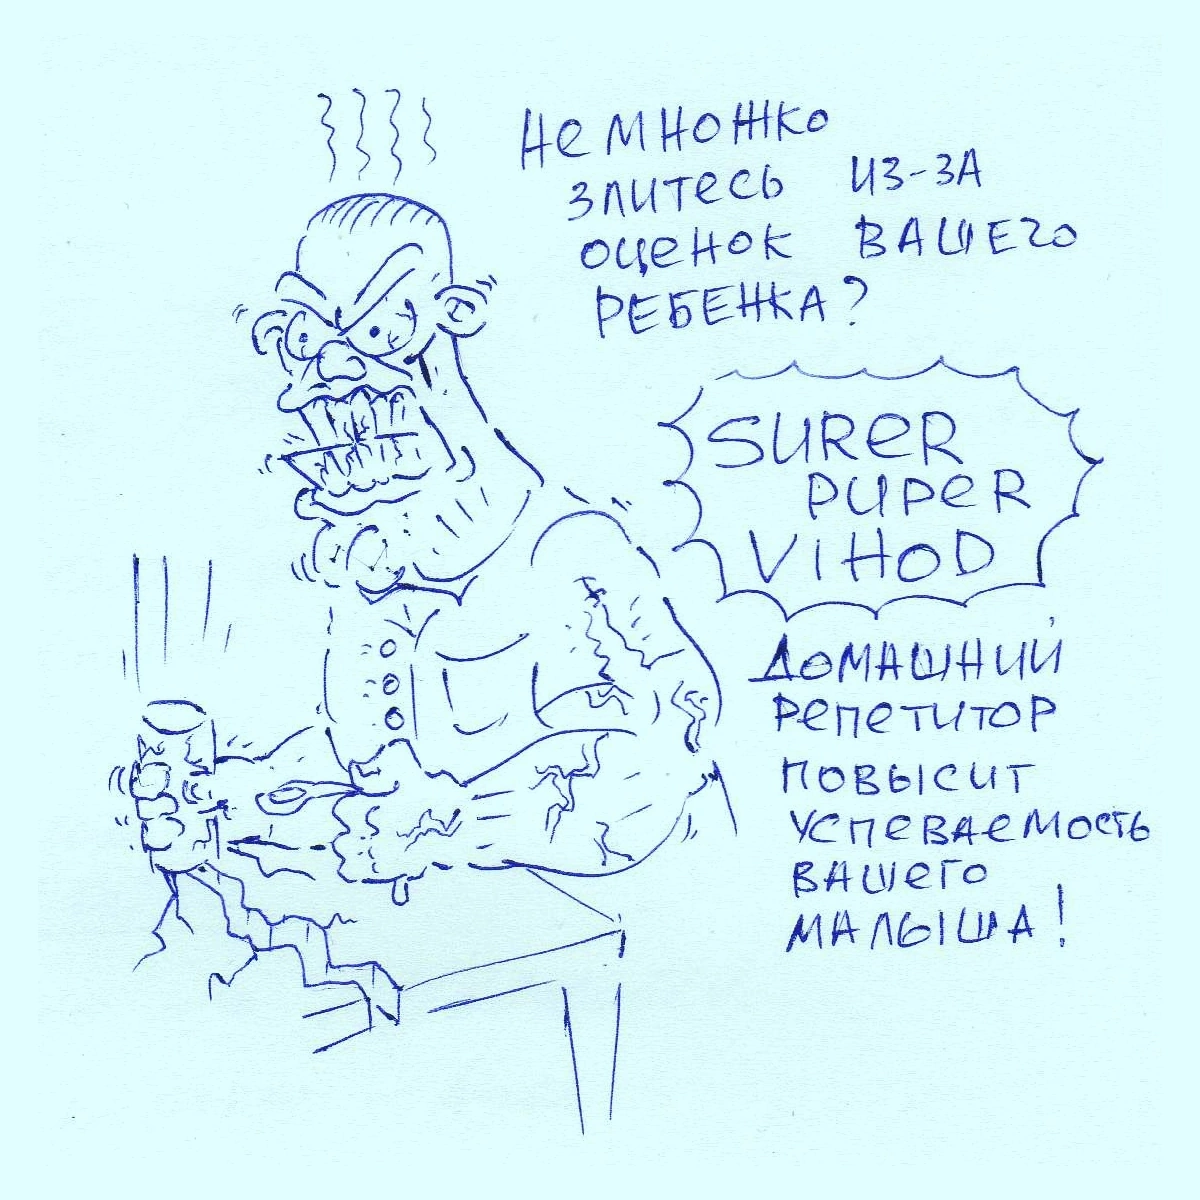 Немножко
злитесь из-за
оценок вашего
ребенка?
SURER
PUPER
VIHOD
Домашний
репетитор
повысит
успеваемость
вашего
малыша!